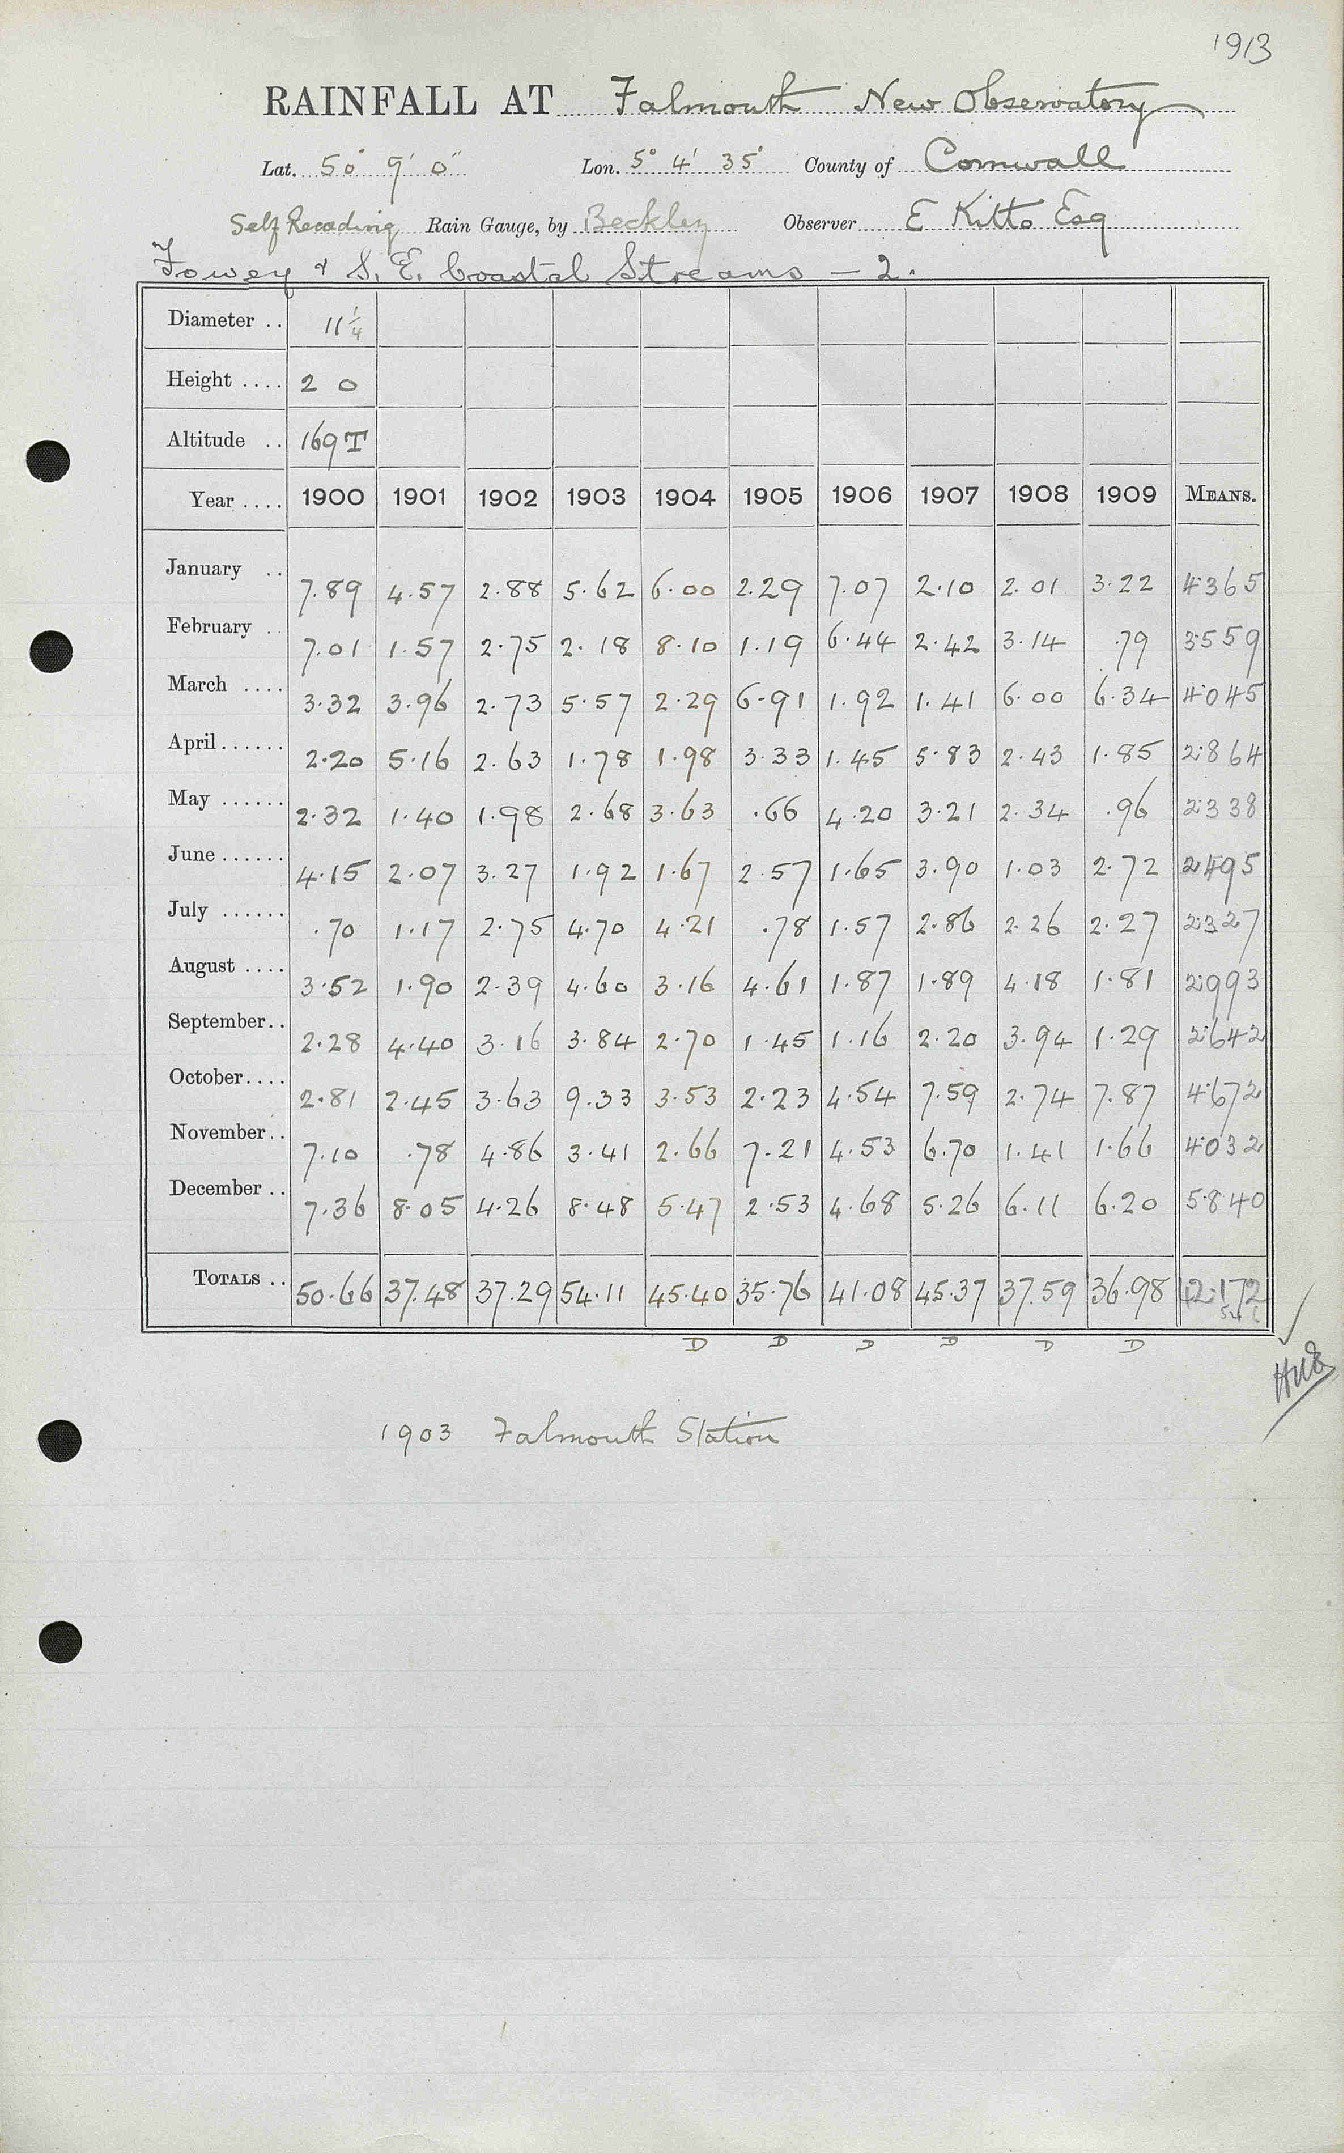 1913
RAINFALL AT Falmouth New Observatory
Lat. 50° 9' 0" Lon. 5° 4' 35" County of Cornwall
Self Recading Rain Gauge, by Beckley Observer E Kitto Esq
Fowey & S. E. Coastal Streams — 2.
Diameter .. 11 1/4
Height .... 2 0
Altitude .. 169 T
Year .... 1900 1901 1902 1903 1904 1905 1906 1907 1908 1909 MEANS.
January .. 7.89 4.57 2.88 5.62 6.00 2.29 7.07 2.10 2.01 3.22 4.365
February .. 7.01 1.57 2.75 2.18 8.10 1.19 6.44 2.42 3.14 .79 3.559
March .... 3.32 3.96 2.73 5.57 2.29 6.91 1.92 1.41 6.00 6.34 4.045
April ...... 2.20 5.16 2.63 1.78 1.98 3.33 1.45 5.83 2.43 1.85 2.864
May ...... 2.32 1.40 1.98 2.68 3.63 .66 4.20 3.21 2.34 .96 2.338
June ...... 4.15 2.07 3.27 1.92 1.67 2.57 1.65 3.90 1.03 2.72 2.495
July ...... .70 1.17 2.75 4.70 4.21 .78 1.57 2.86 2.26 2.27 2.327
August .... 3.52 1.90 2.39 4.60 3.16 4.61 1.87 1.89 4.18 1.81 2.993
September.. 2.28 4.40 3.16 3.84 2.70 1.45 1.16 2.20 3.94 1.29 2.642
October.... 2.81 2.45 3.63 9.33 3.53 2.23 4.54 7.59 2.74 7.87 4.672
November.. 7.10 .78 4.86 3.41 2.66 7.21 4.53 6.70 1.41 1.66 4.032
December .. 7.36 8.05 4.26 8.48 5.47 2.53 4.68 5.26 6.11 6.20 5.840
TOTALS .. 50.66 37.48 37.29 54.11 45.40 35.76 41.08 45.37 37.59 36.98 42.172
D D D D D D
1903 Falmouth Station